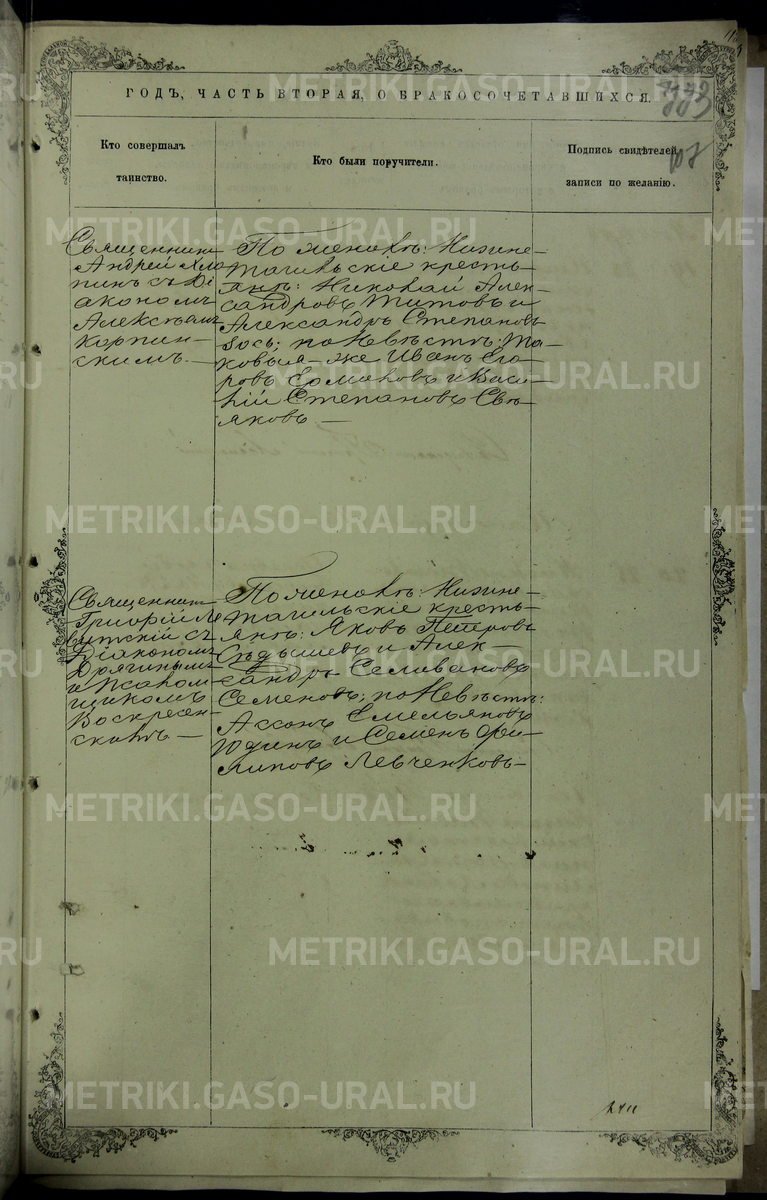 ГОДЪ, ЧАСТЬ ВТОРАЯ, О БРАКОСОЧЕТАВШИХСЯ.
Кто совершалъ
таинство.
Кто были поручители.
Подпись свидѣтелей
записи по желанію.
107
Священникъ
Андрей Хло
пинъ съ Ді
акономъ
Алексѣемъ
Карпин-
скимъ. —
По женихѣ: Нижне-
тагильскіе кресть-
янѣ: Николай Алек-
сандровъ Титовъ и
Александръ Степановъ
по Невѣстѣ: та-
ковыя-же Иванъ Его-
ровъ Ермаковъ и Васи-
лій Степановъ Свѣ-
яковъ —
Священникъ
Григорій Ле
витскій съ
Діакономъ
Дрягинымъ
и Псалом
щикомъ
Воскресен-
скимъ —
По женихѣ: Нижне-
тагильскіе кресть-
янѣ: Яковъ Петровъ
Сѣдышевъ и Алек-
сандръ Селивановъ
Семеновъ; по Невѣстѣ:
Ассонъ Емельяновъ
Юдинъ и Семенъ Фи-
липовъ Левченковъ —
METRIKI.GASO-URAL.RU